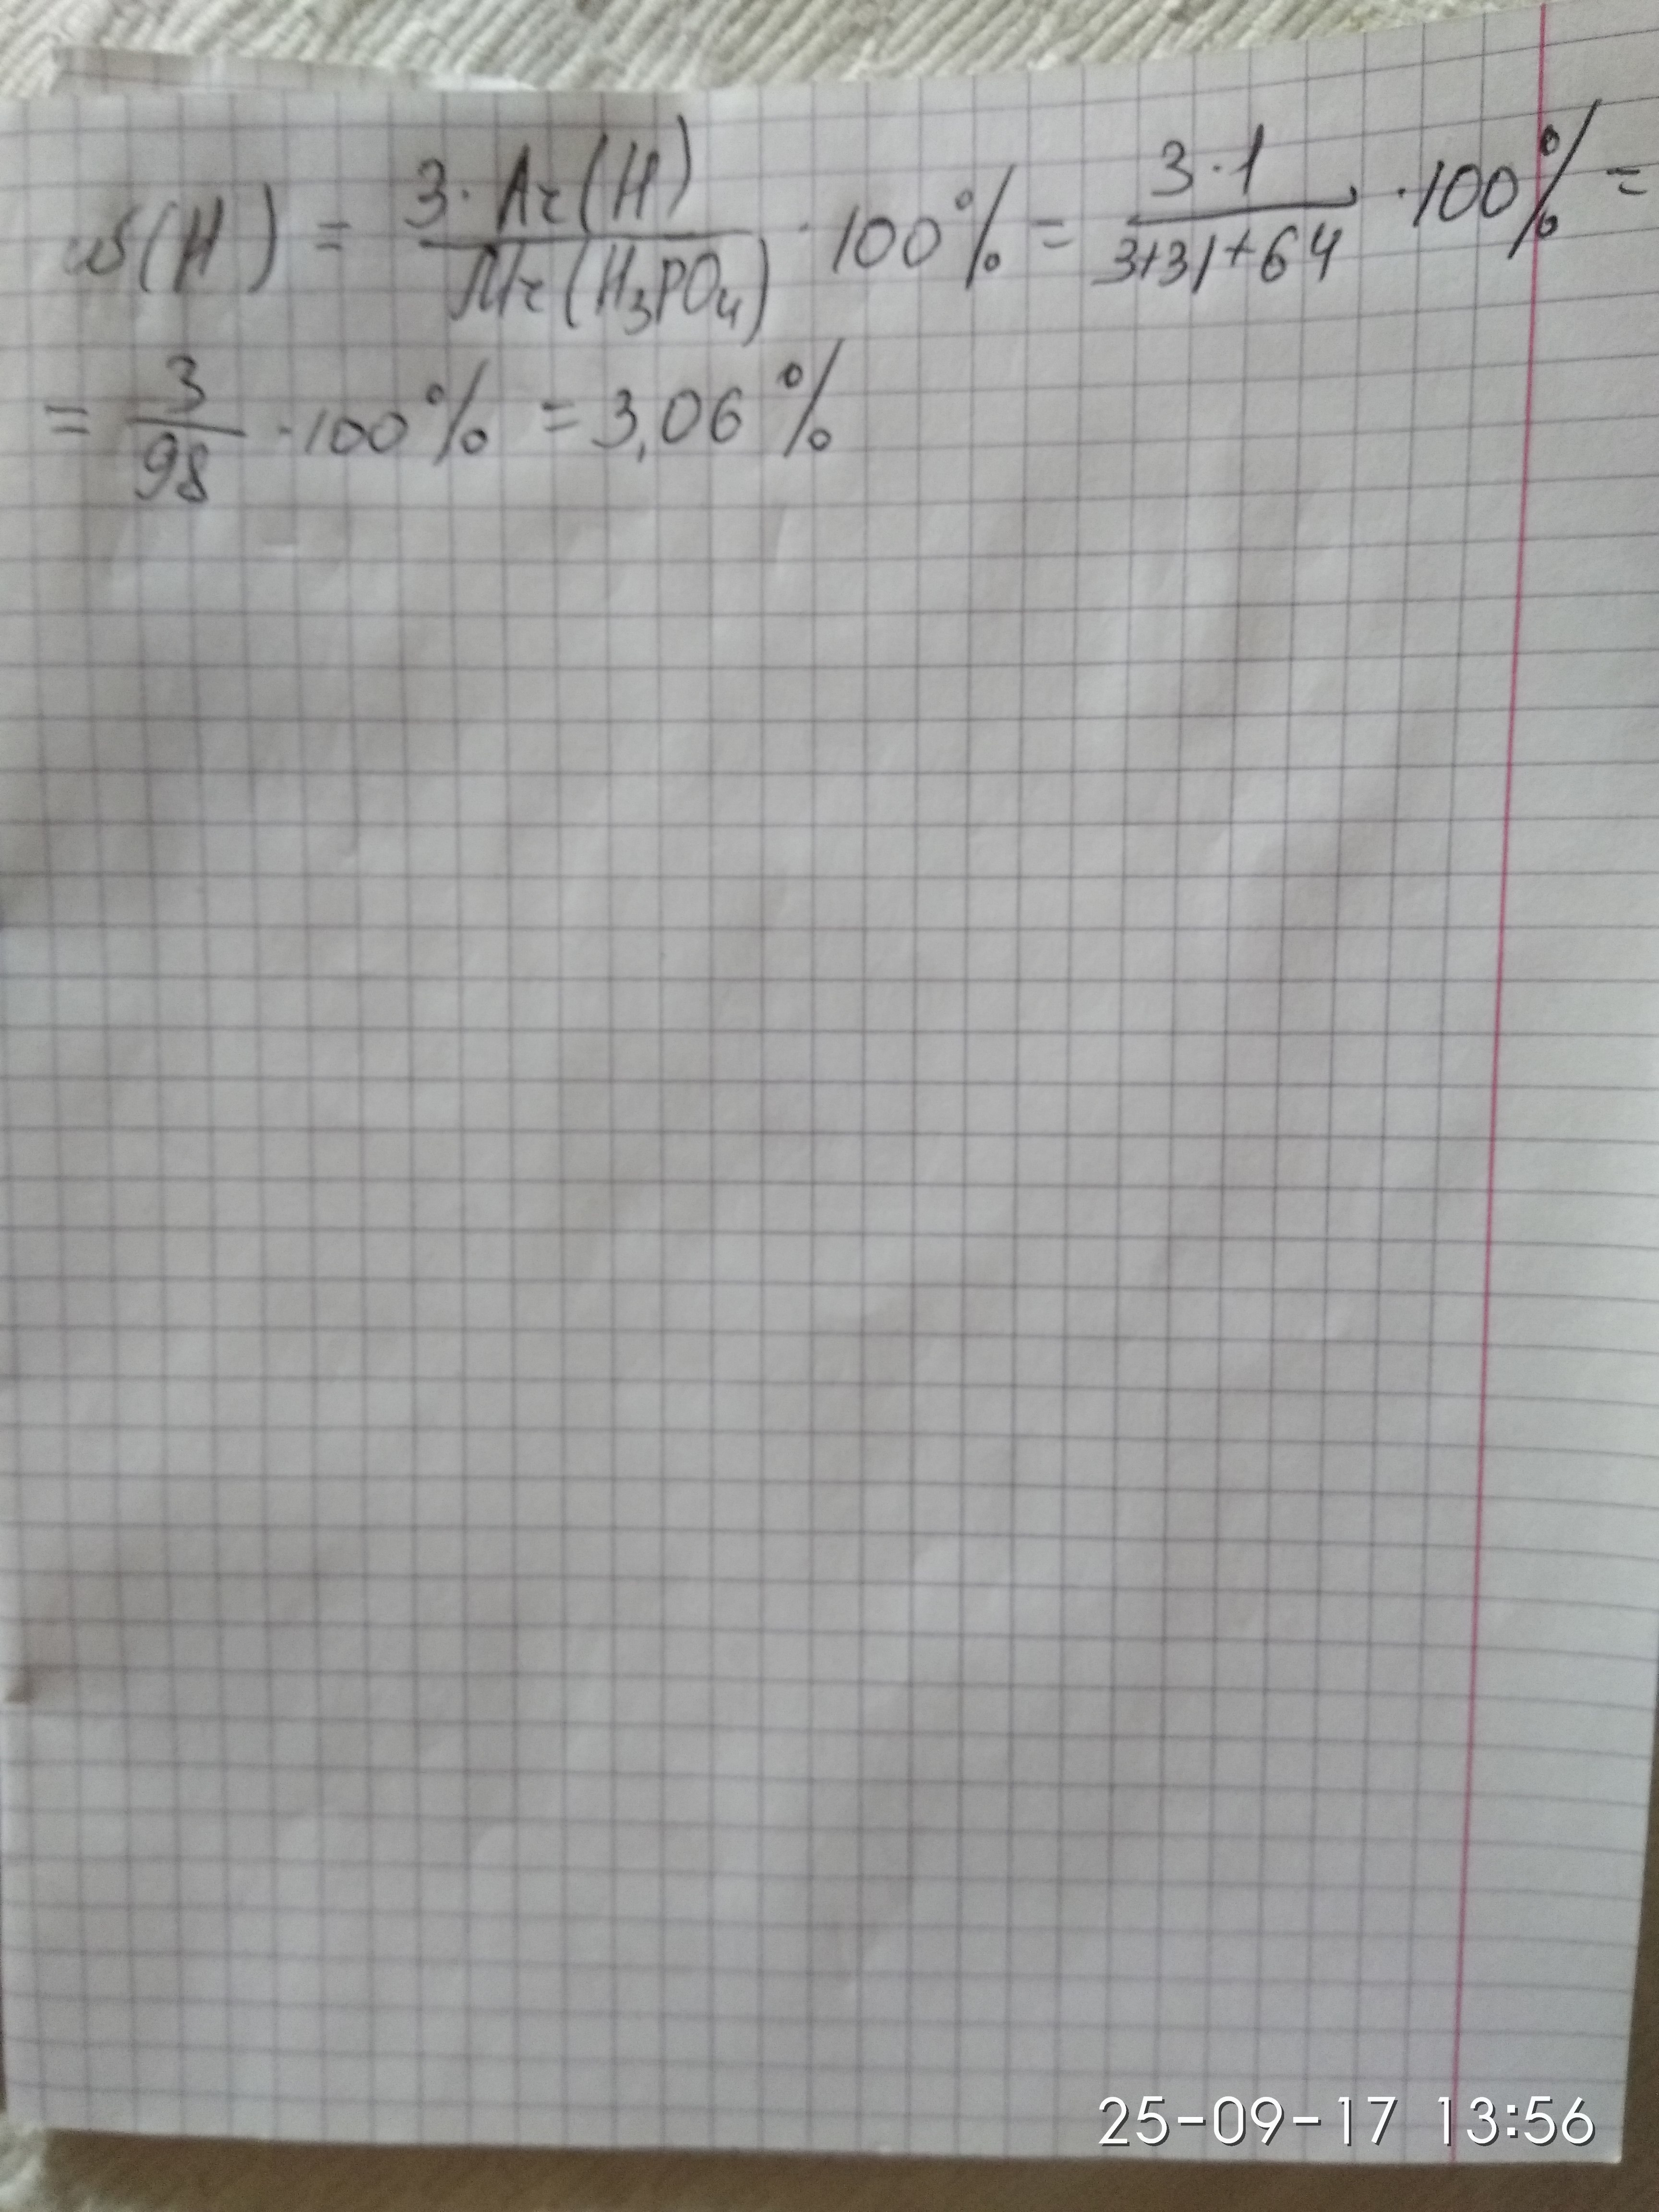 ω(H) = 3·Ar(H) / Mr(H₃PO₄) · 100% = 3·1 / 3+31+64 · 100% =
= 3/98 · 100% = 3,06%
25-09-17 13:56